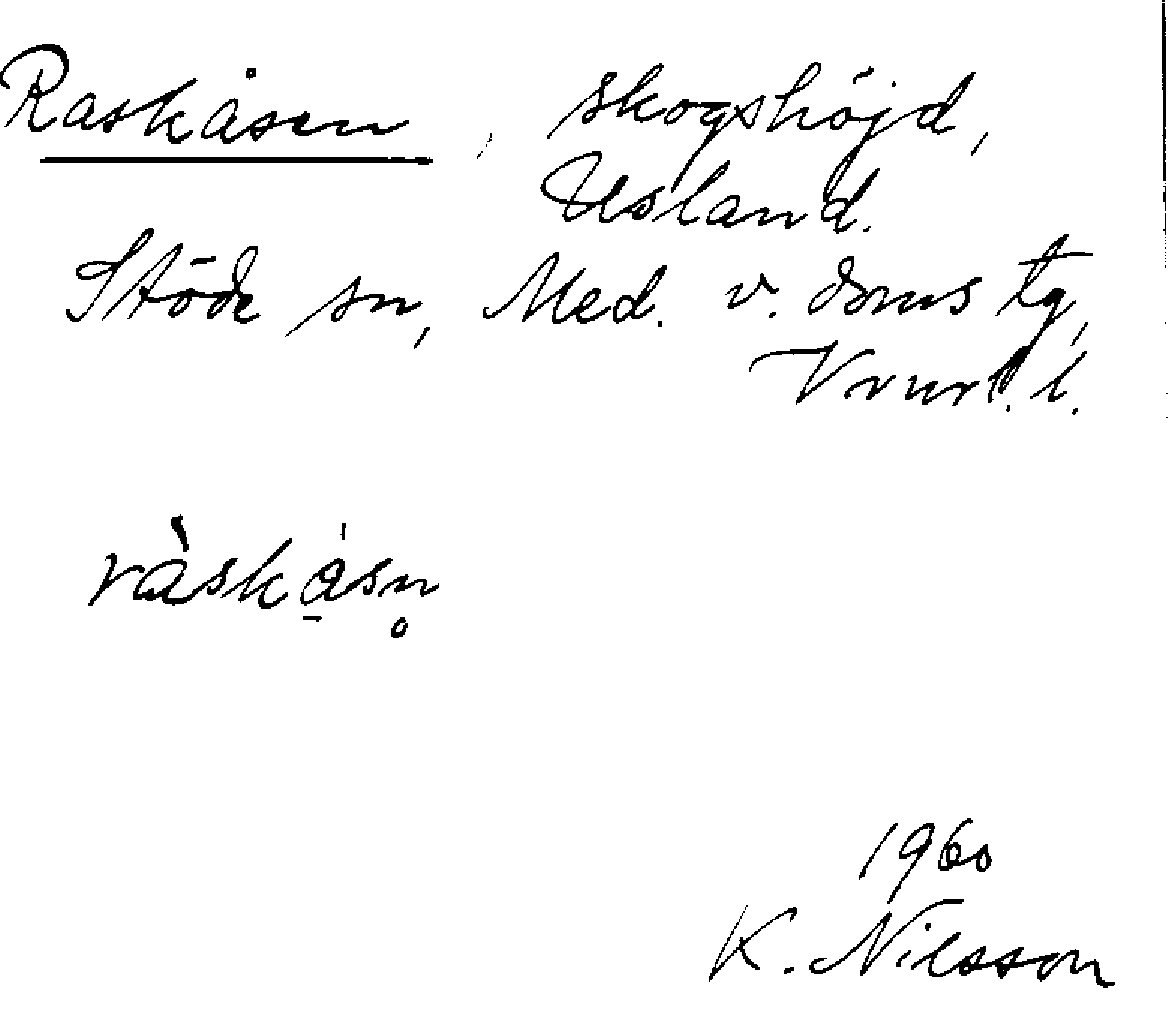 Raskåsen, skogshöjd,
Usland.
Stöde sn, Med. v. doms tg,
Vnurl. l.
ràskásn̥
1960
K. Nilsson